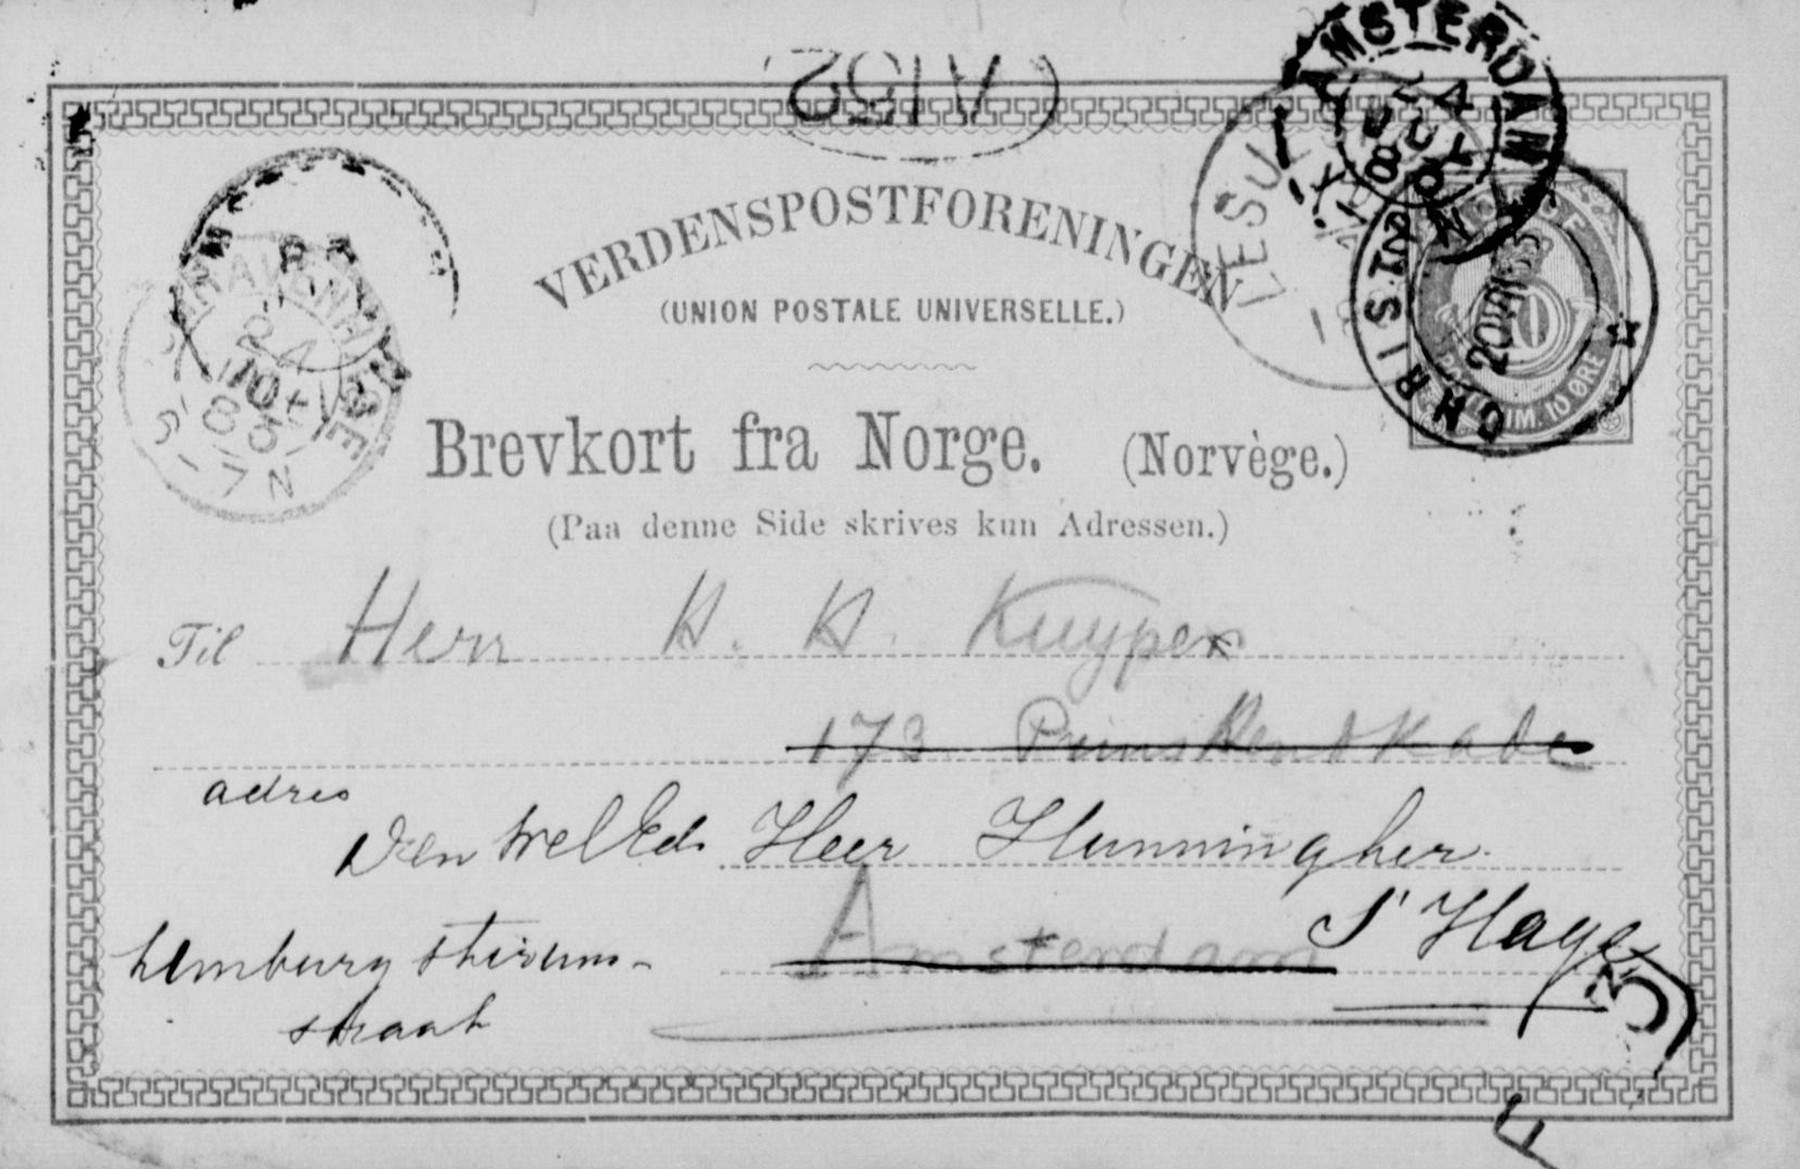 A152
AMSTERDAM
24
JUY
83
VERDENSPOSTFORENINGEN
(UNION POSTALE UNIVERSELLE.)
CHRISTI
20 VII 83
10
POSTFRIM. 10 ØRE
GRAVENHAGE
24
83
5-7N
Brevkort fra Norge. (Norvège.)
(Paa denne Side skrives kun Adressen.)
Til Herr Kuyper
173 Prins Hendr Kade
adres
Den Wel Ed. Heer Hunningher
S' Hage
Limburg Stirum-
Amsterdam
straat
3
F